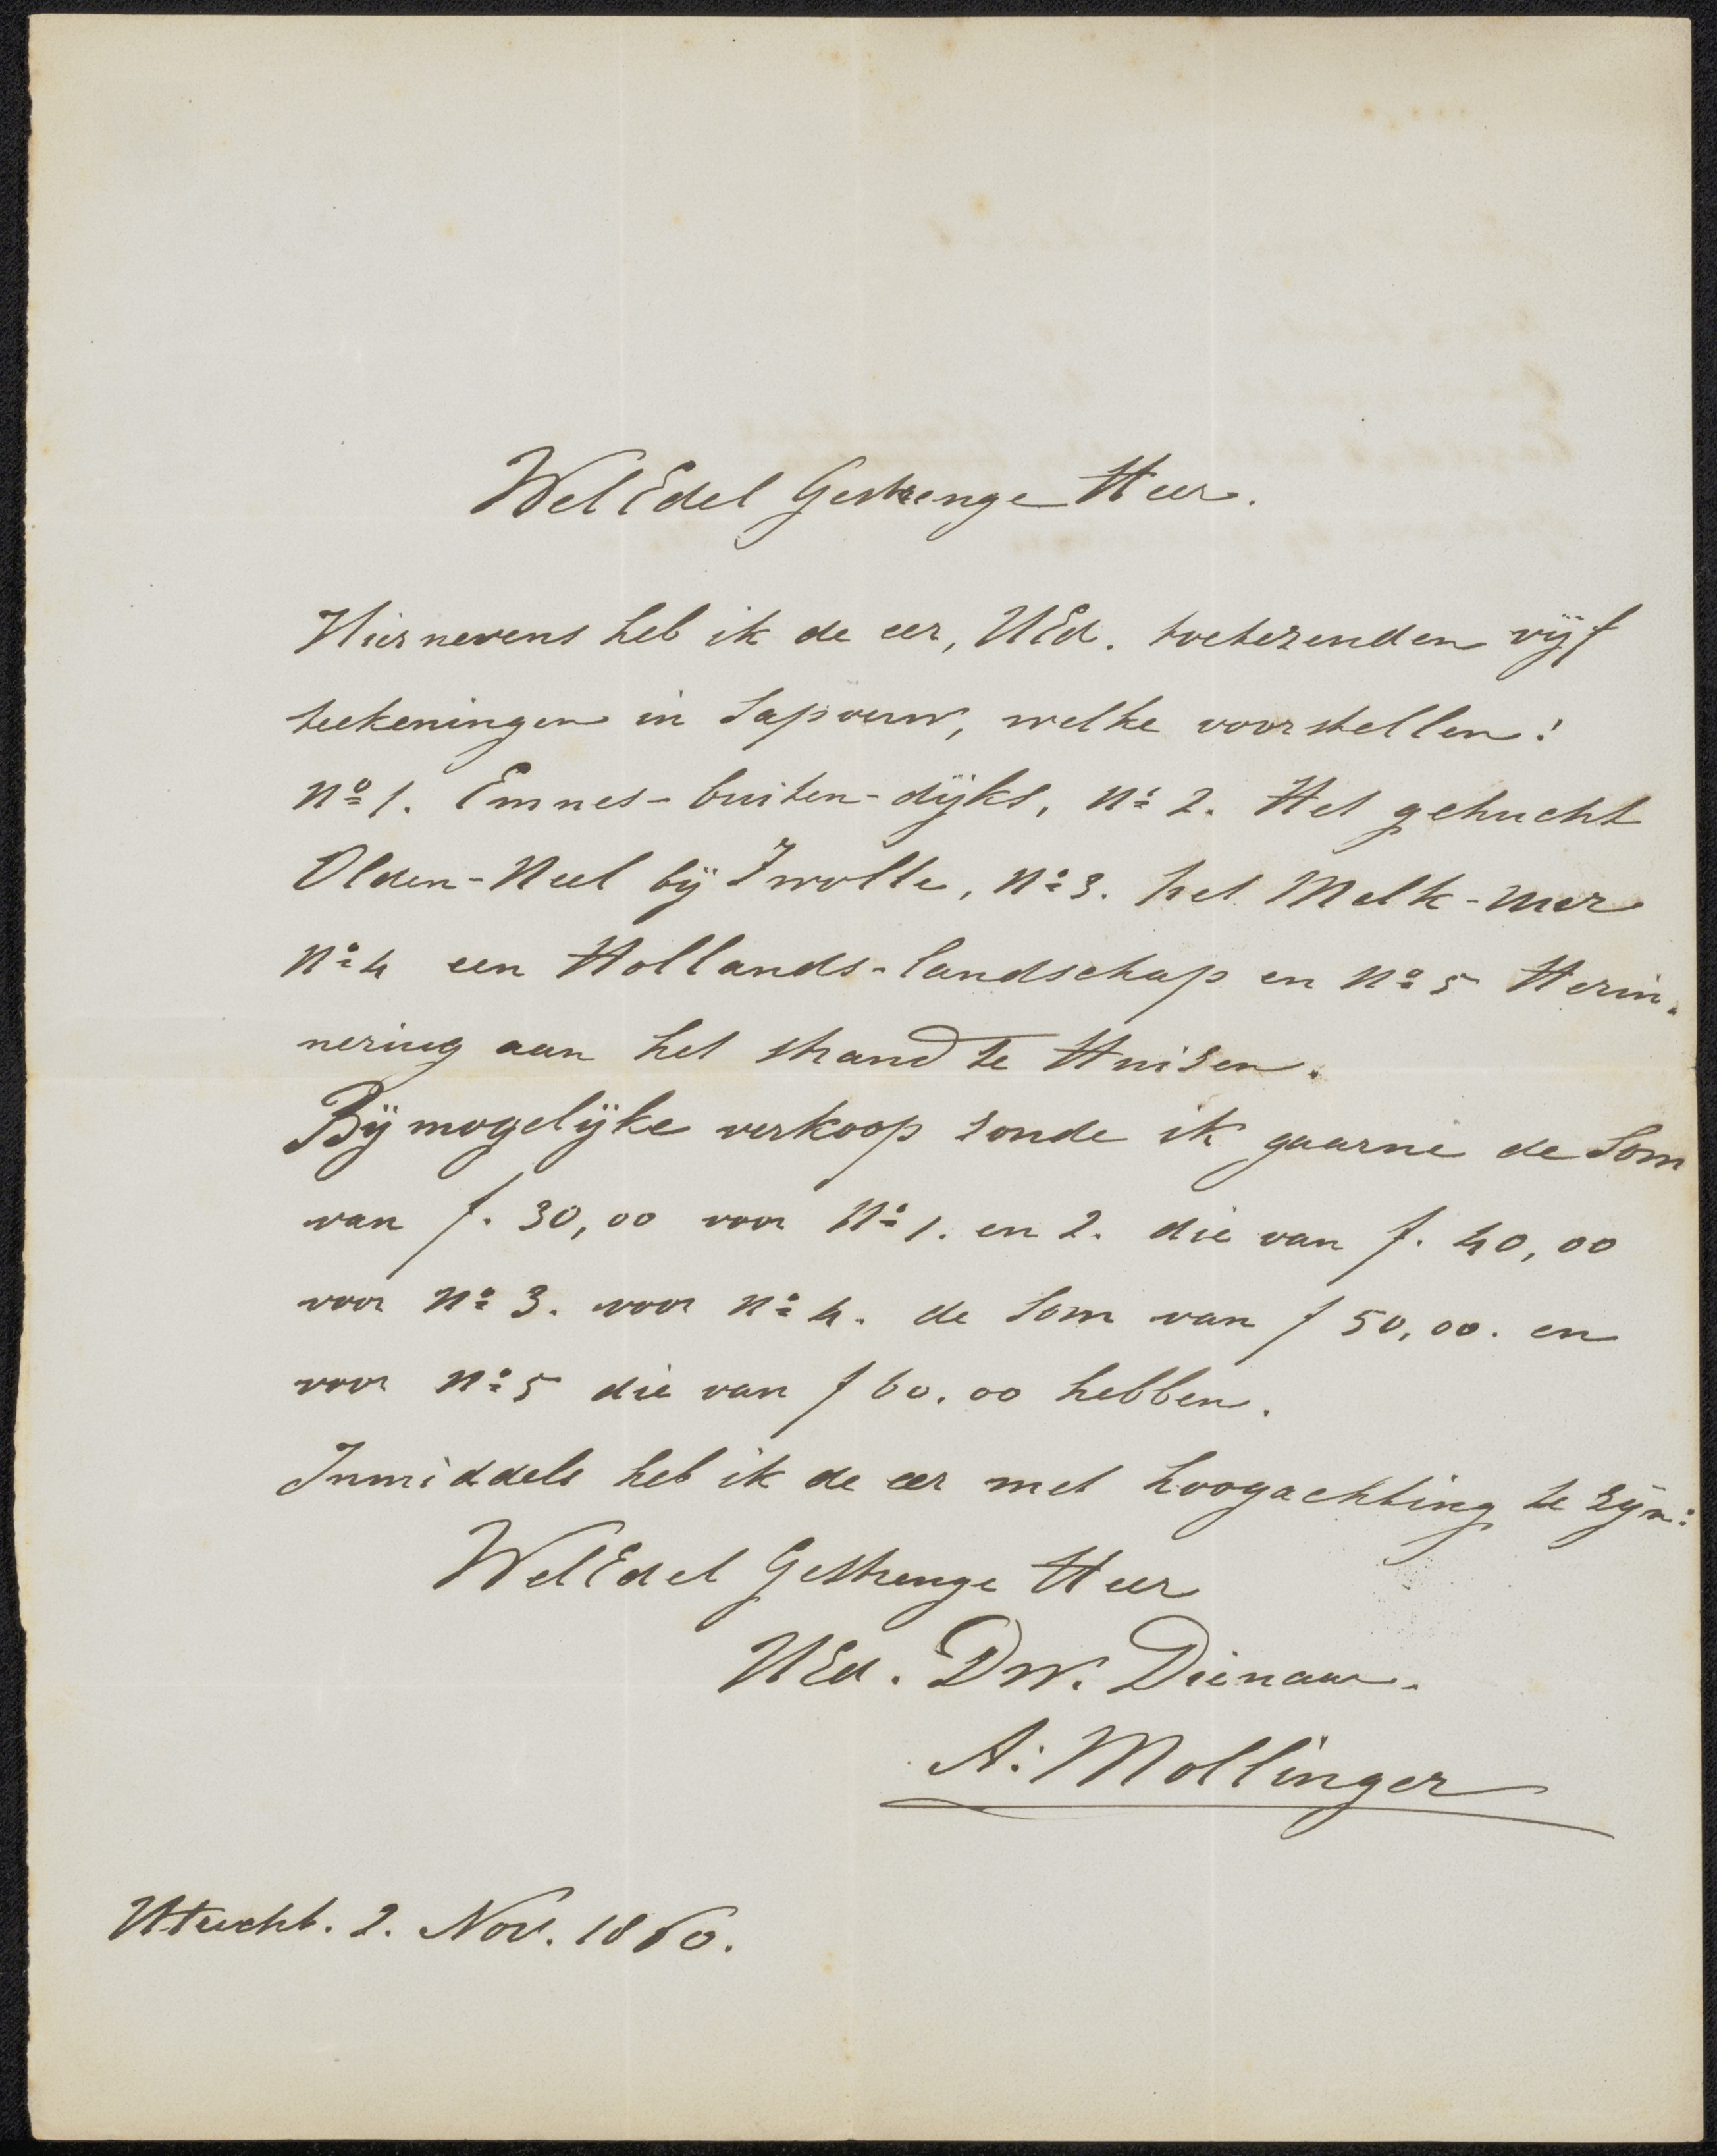 WelEdel Gestrenge Heer.
Hiernevens heb ik de eer, UEd. toetezenden vijf
teekeningen in Sapverw, welke voorstellen:
No 1. Emnes-buiten-dijks, No 2. Het gehucht
Olden-Neel bij Zwolle, No 3. het Melk-uur
No 4 een Hollands-landschap en No 5 Herin-
nering aan het strand te Huisen.
Bij mogelijke verkoop zoude ik gaarne de Som
van f. 30,00 voor No 1. en 2. die van f. 40,00
voor No 3. voor No 4. de Som van f 50,00. en
voor No 5 die van f 60.00 hebben.
Inmiddels heb ik de eer met hoogachting te zijn:
WelEdel Gestrenge Heer
UEd. Dw. Dienaar.
A. Mollinger
Utrecht. 2. Nov. 1860.